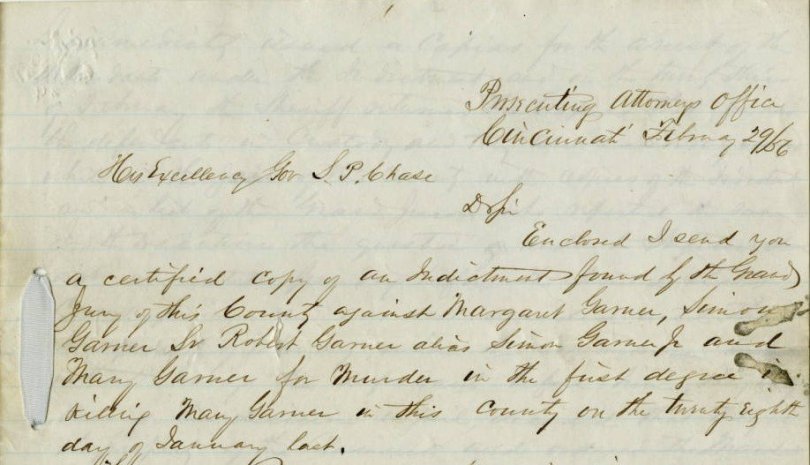 Prosecuting Attorneys Office
Cincinnati February 29/56
His Excellency Gov S. P. Chase
D Sir
Enclosed I send you
a certified copy of an Indictment found by the Grand
Jury of this County against Margaret Garner, Simon
Garner Sr Robert Garner alias Simon Garner Jr and
Mary Garner for Murder in the first degree in
killing Mary Garner in this County on the twenty eighth
day of January last.